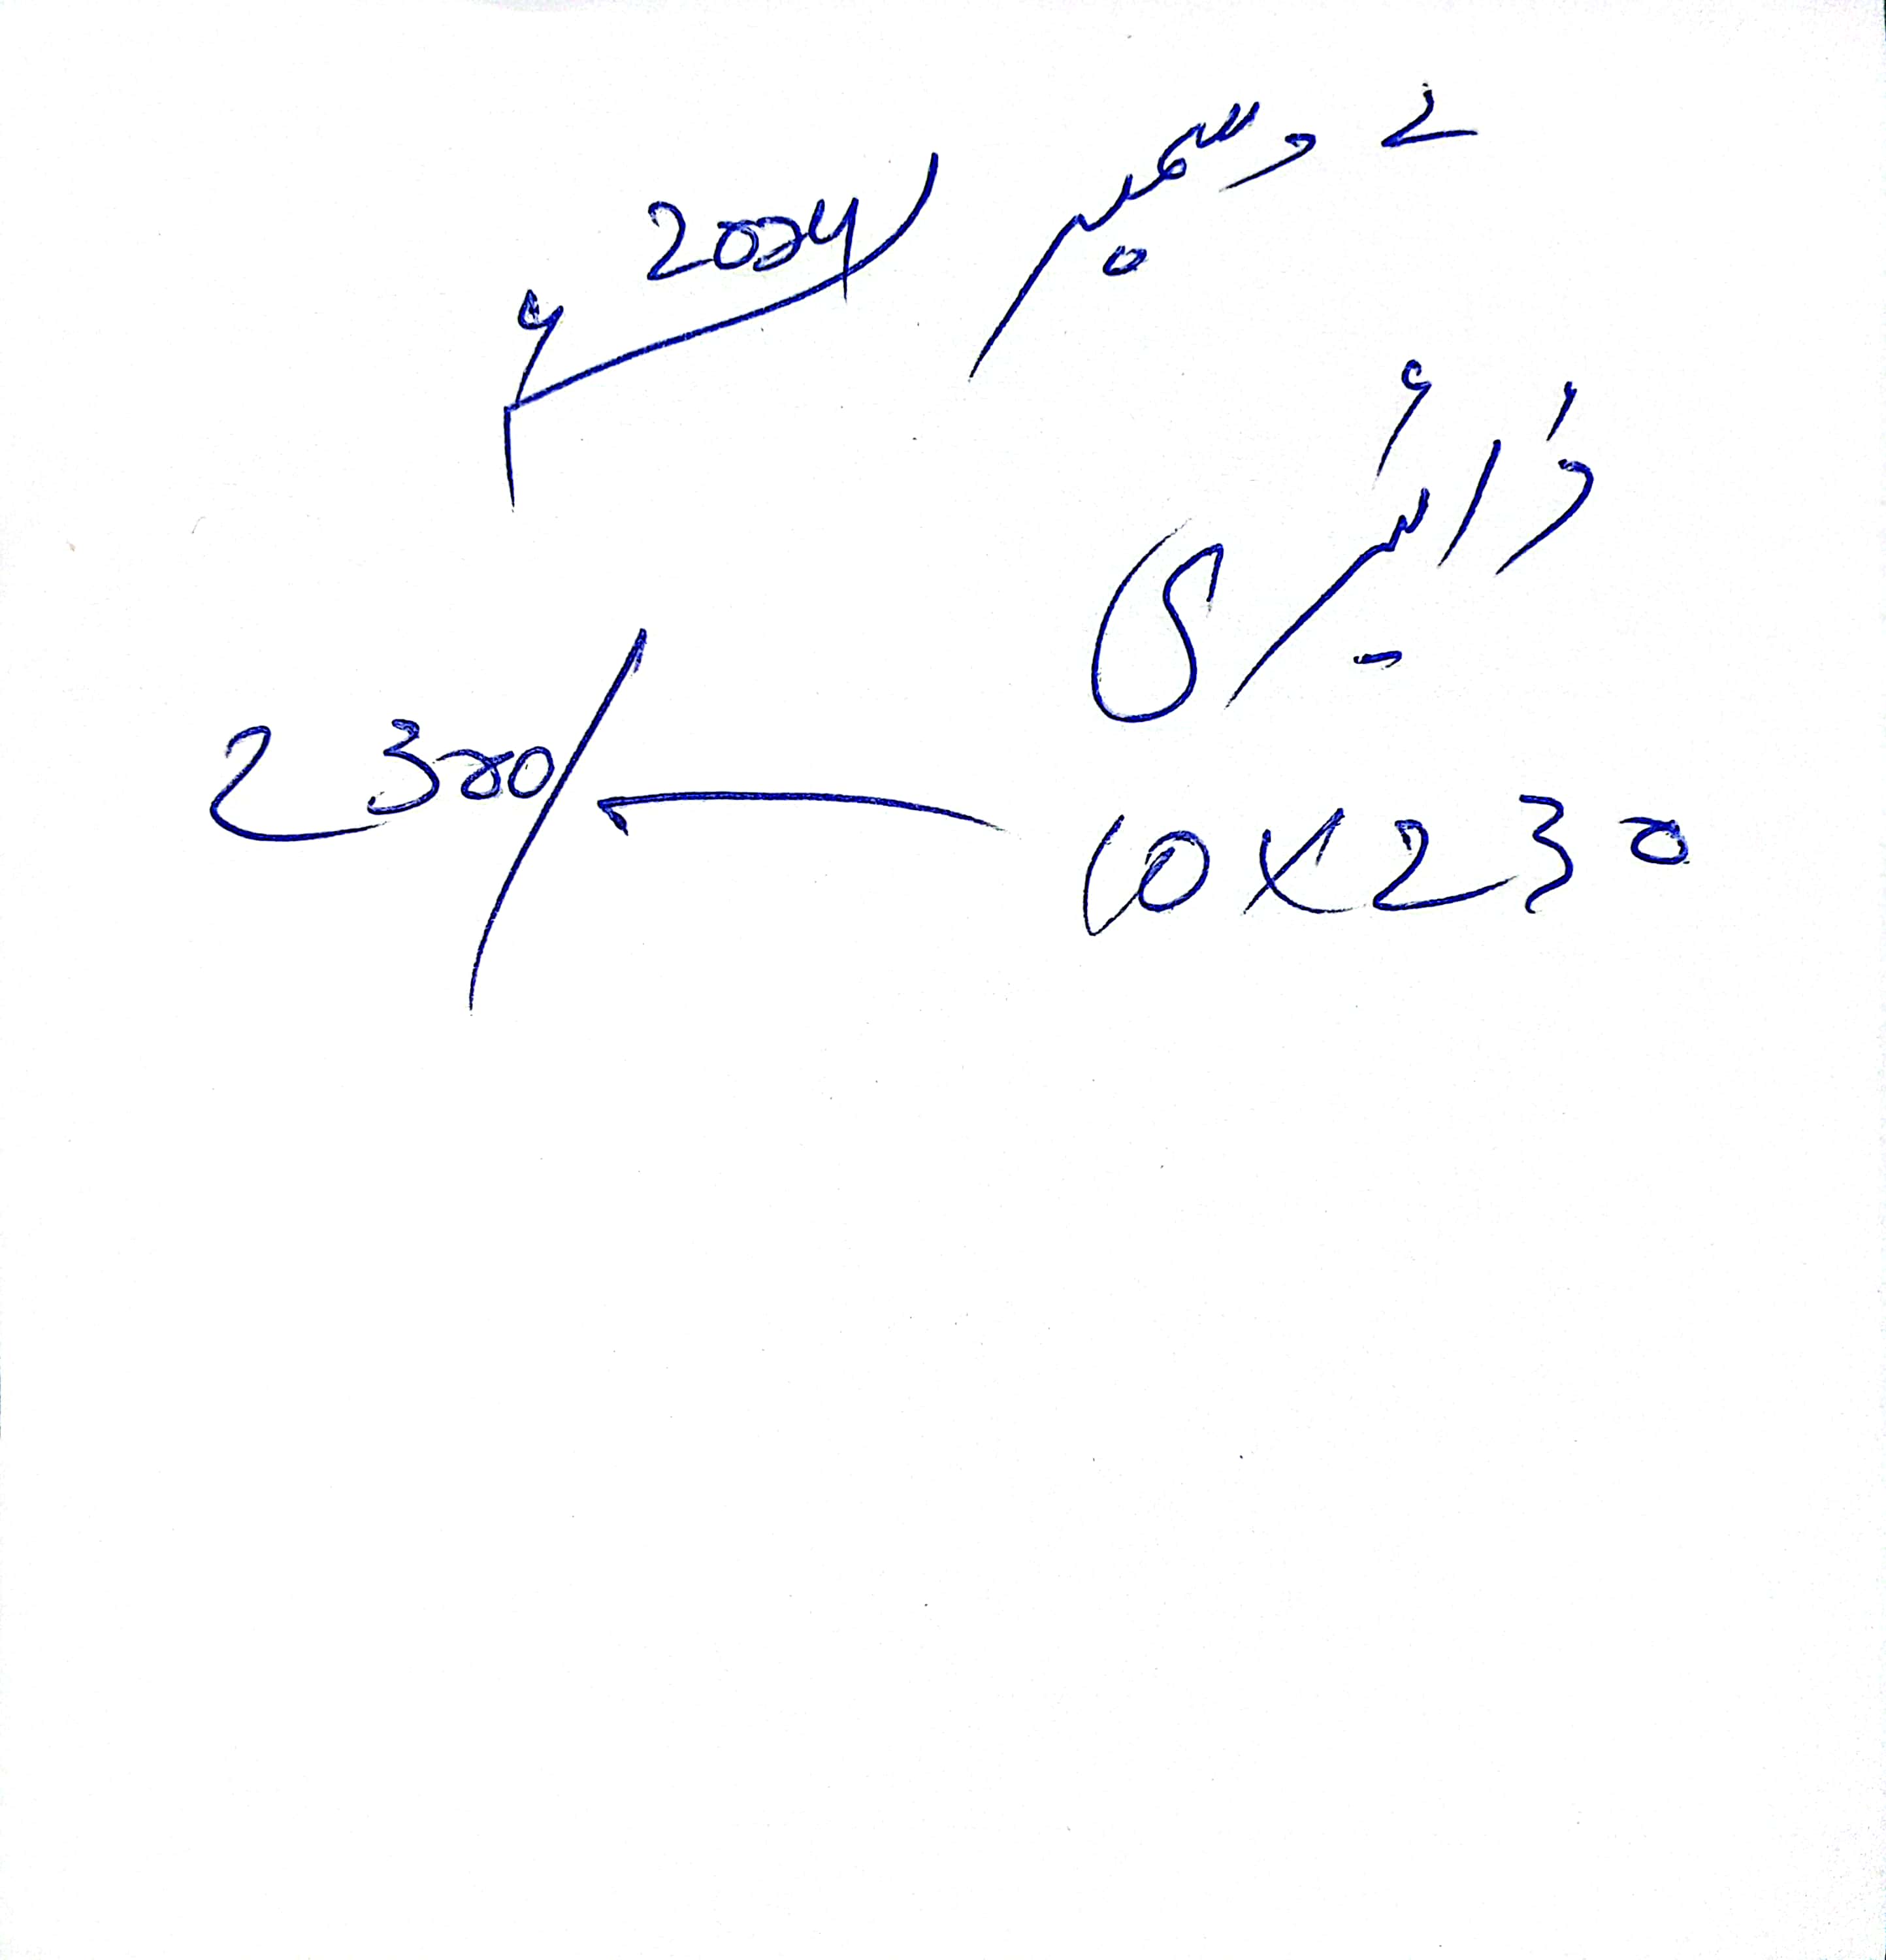 2 دسمبر 2024ء
ڈائیری
10 X 230 ← 2300/